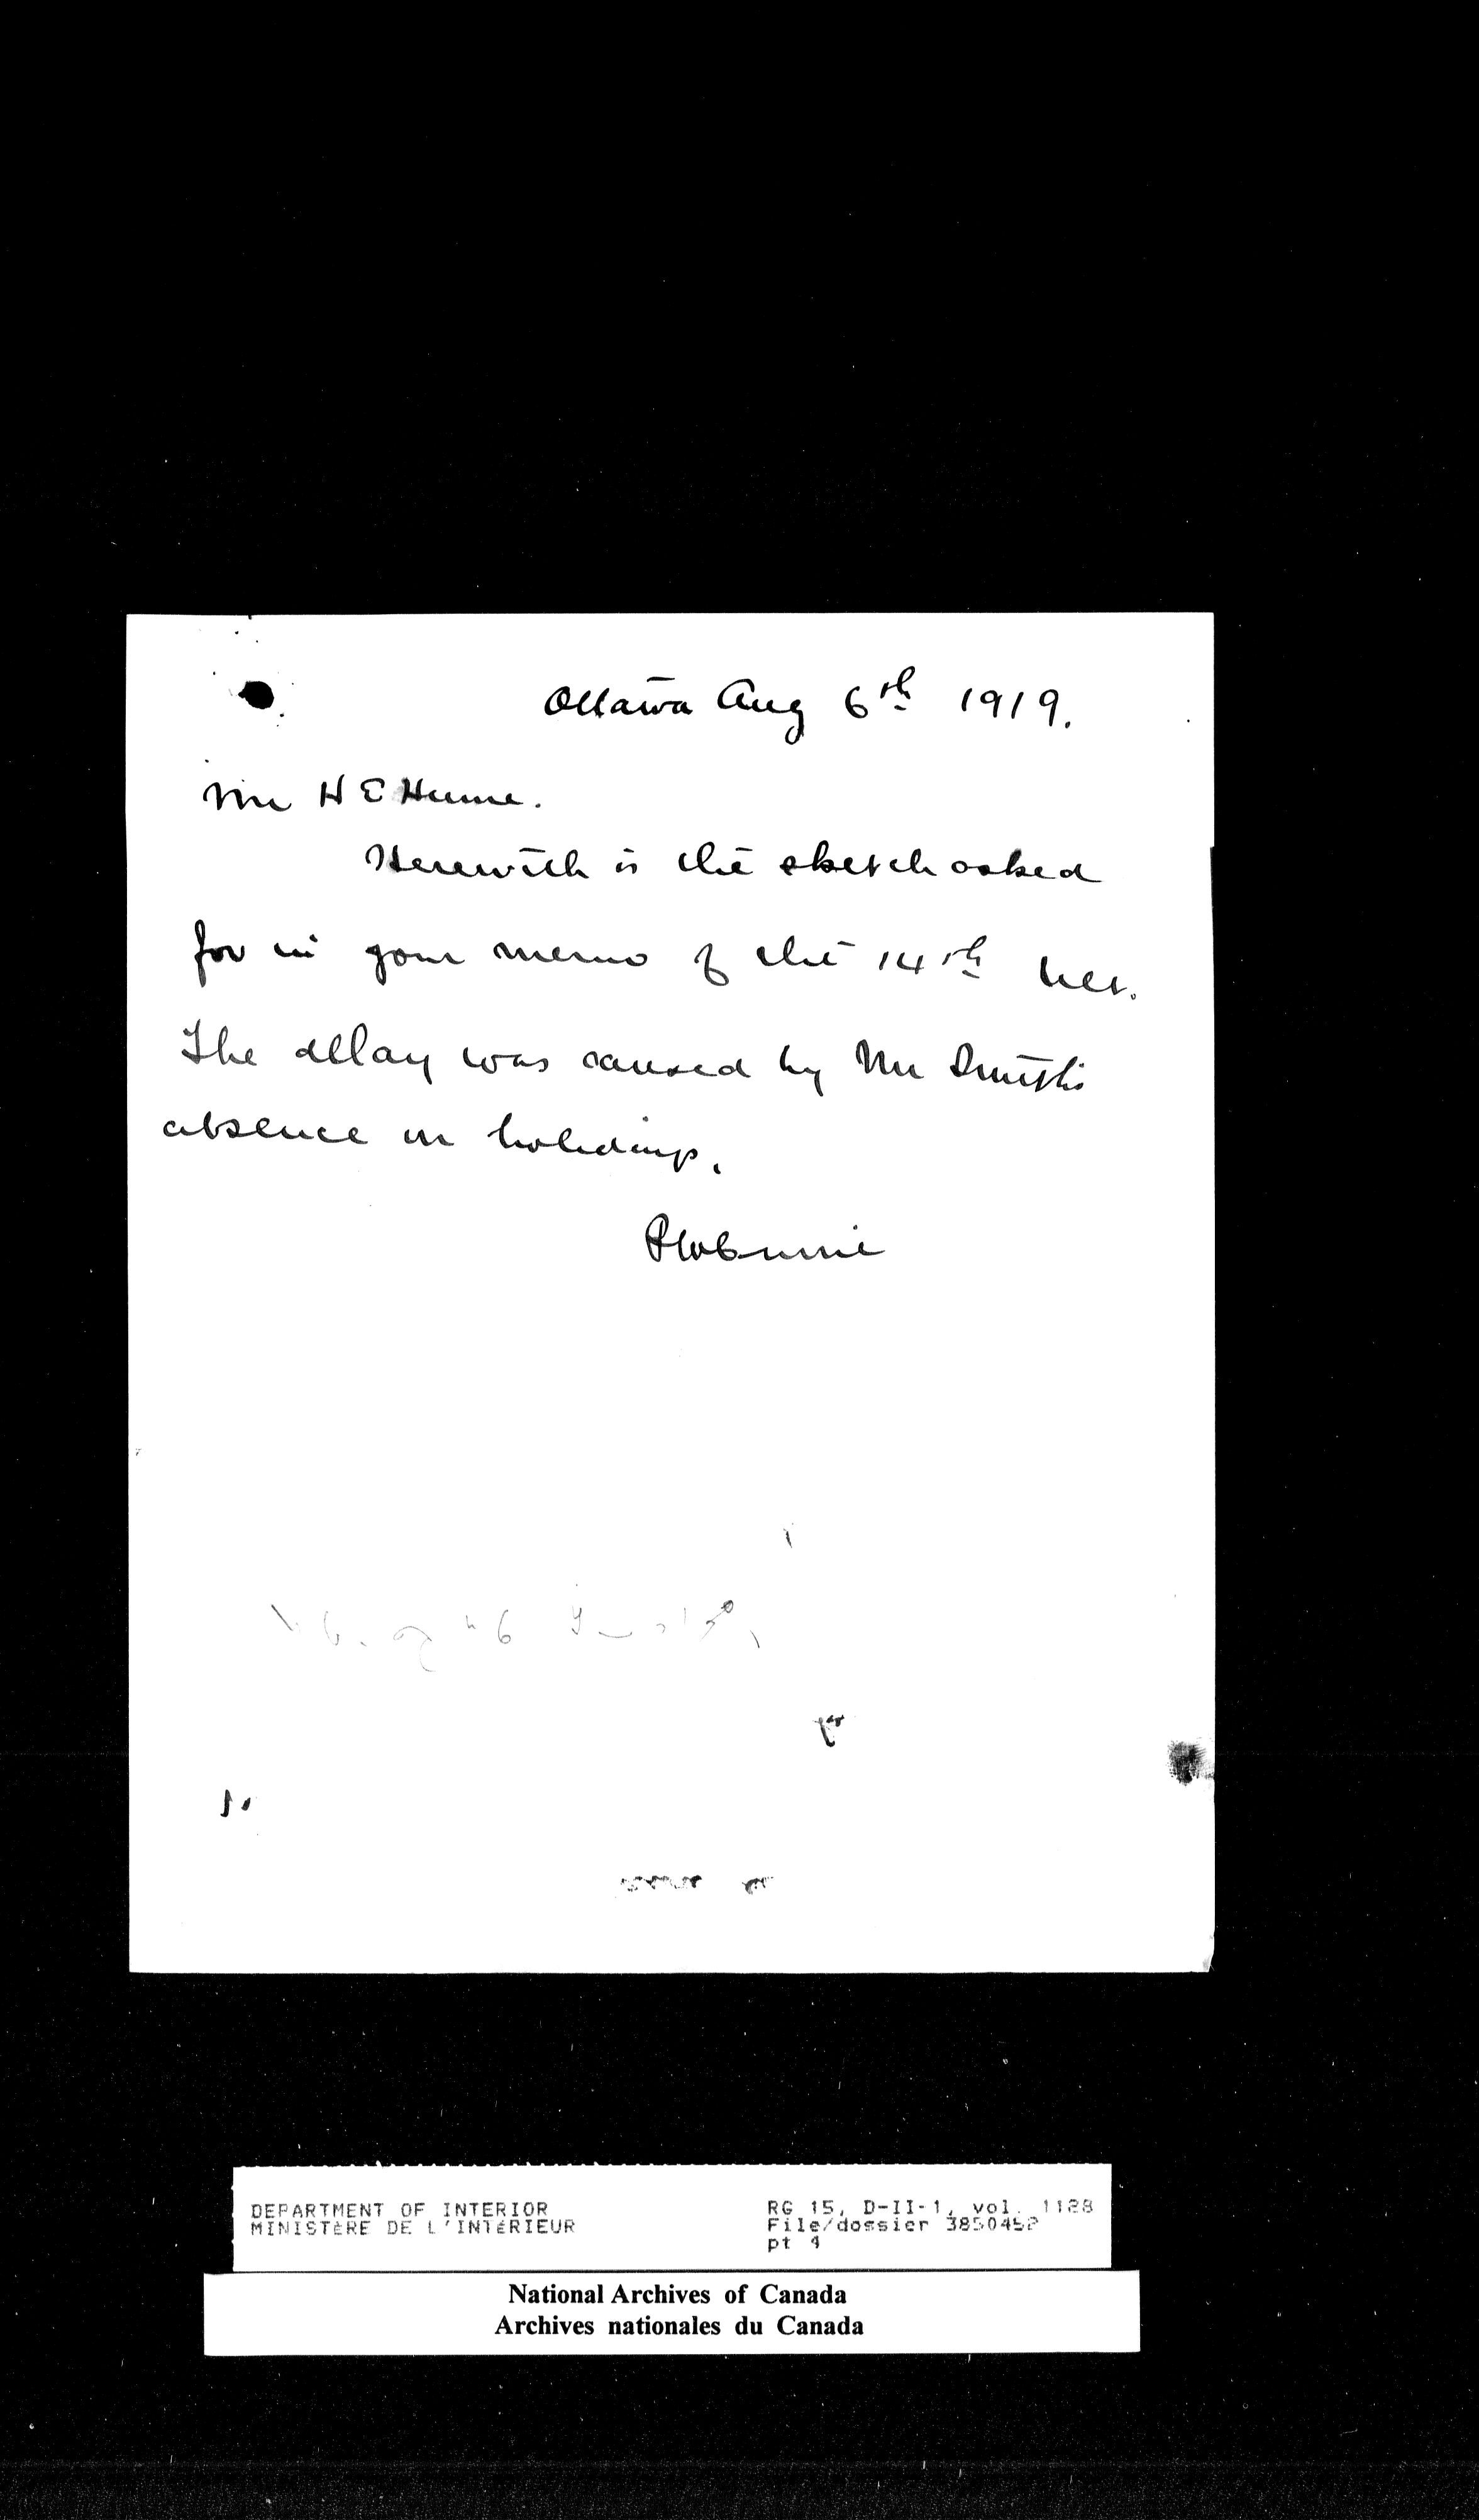 Ottawa Aug 6th 1919.
Mr H E Hume.
Herewith is the sketch asked
for in your memo of the 14th ult.
The delay was caused by Mr Smith's
absence on holidays.
DEPARTMENT OF INTERIOR
MINISTÈRE DE L'INTÉRIEUR
RG 15, D-II-1, vol. 1128
File/dossier 3850452
pt 4
National Archives of Canada
Archives nationales du Canada